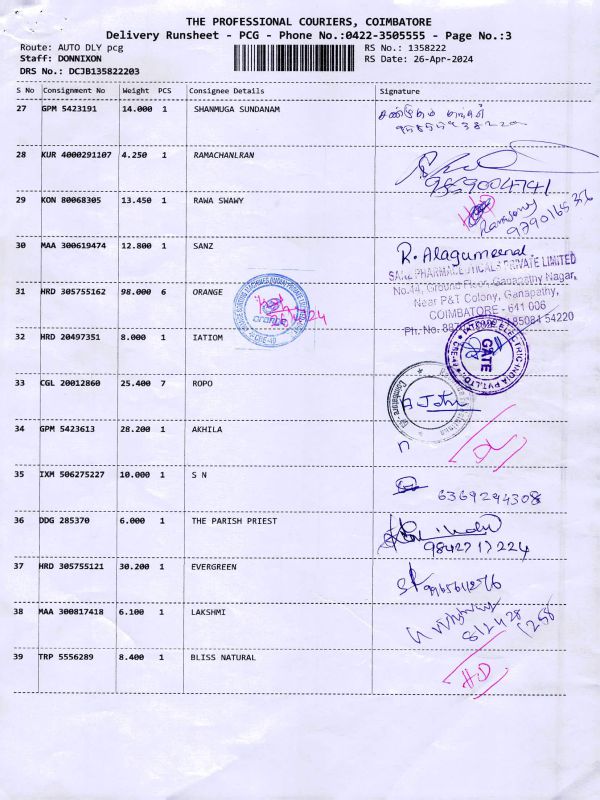 THE PROFESSIONAL COURIERS, COIMBATORE
Delivery Runsheet - PCG - Phone No.:0422-3505555 - Page No.:3
Route: AUTO DLY pcg RS No.: 1358222
Staff: DONNIXON RS Date: 26-Apr-2024
DRS No.: DCJB135822203
S No Consignment No Weight PCS Consignee Details Signature
27 GPM 5423191 14.000 1 SHANMUGA SUNDANAM
28 KUR 4000291107 4.250 1 RAMACHANLRAN
9589004741
29 KON 80068305 13.450 1 RAWA SWAWY
Ramasamy
9790165356
30 MAA 300619474 12.800 1 SANZ R. Alagumeenal
SANZ PHARMACEUTICALS PRIVATE LIMITED
No.44, Ground Floor, Ganapathy Nagar,
Near P&T Colony, Ganapathy,
COIMBATORE - 641 006
Ph. No. 85084 54220
31 HRD 305755162 98.000 6 ORANGE
orange
32 HRD 20497351 8.000 1 IATIOM
GATE
ELECTRIC INDIA PVT.LTD.
33 CGL 20012860 25.400 7 ROPO
A John
Coimbatore
34 GPM 5423613 28.200 1 AKHILA
35 IXM 506275227 10.000 1 S N
6369294308
36 DDG 285370 6.000 1 THE PARISH PRIEST
9842717224
37 HRD 305755121 30.200 1 EVERGREEN
38 MAA 300817418 6.100 1 LAKSHMI
39 TRP 5556289 8.400 1 BLISS NATURAL
HD